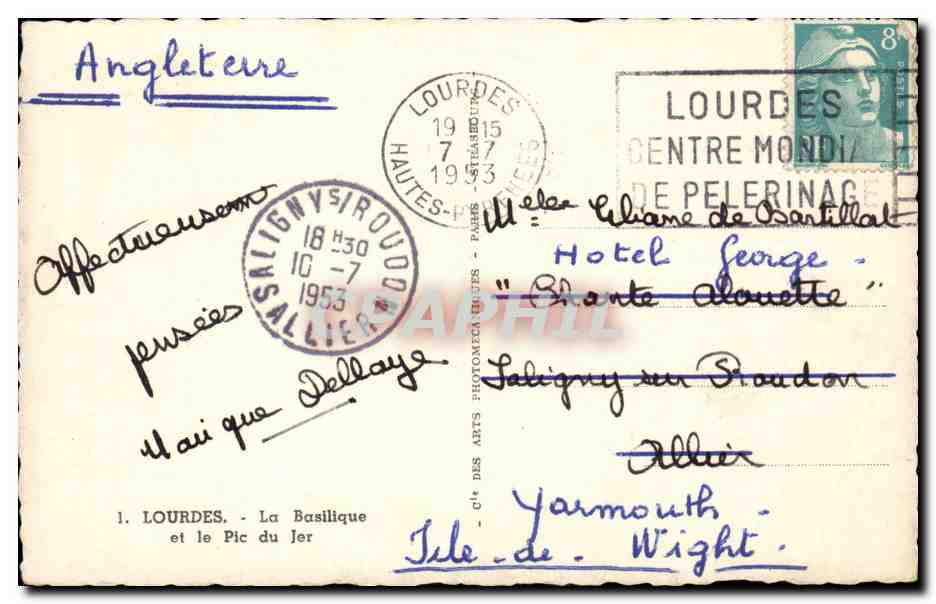 Angleterre
LOURDES
19 15
7 7
1953
HAUTES-PYRENEES
LOURDES
CENTRE MONDIA
DE PELERINAG
8
SALIGNY S/ROUDON
18 H 30
10 -7
1953
ALLIER
Affectueuses
pensées
Delloye
Melle Liliane de Bartillat
Hotel George -
"Chante Alouette"
Saligny sur Roudon
Allier
Yarmouth -
Isle-de-Wight.
1. LOURDES. - La Basilique
et le Pic du Jer
- Cie DES ARTS PHOTOMECANIQUES - PARIS - STRASBOURG
CPAPHIL